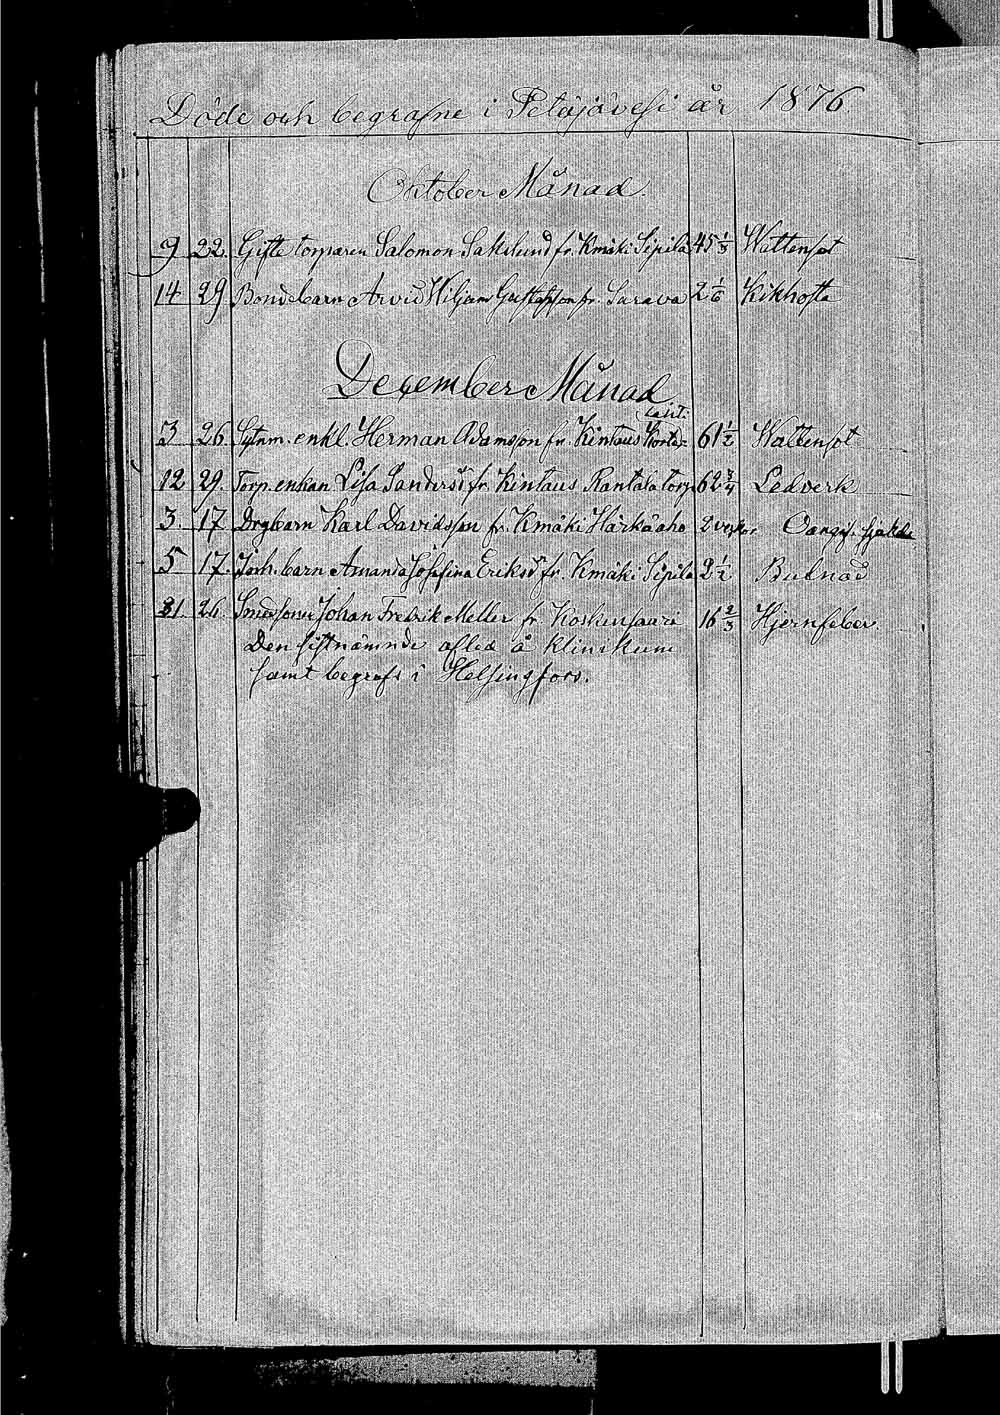 Döde och begrafne i Petäjävesi år 1876
Oktober Månad.
9 22. Gifte torparen Salomon Sakslund fr. Kmäki Sipilä 45 1/3 Wattensot
14 29 Bondebarn Arvid Wiljam Gustafsson fr. Sarava 2 1/6 Kikhosta
December Månad
Lahti
3 26. Sytnm. enkl. Herman Adamsson fr. Kintaus 61 1/2 Wattensot
12 29. Torp. enkan Lisa Sandersd. fr. Kintaus Rantala torp 62 3/4 Ledverk
3. 17. Drgbarn Karl Davidsson fr. Kmäki Härkäaho 2 veckor Oangif.
5 17. Inh. barn Amanda Josefina Eriksdr fr. Kmäki Sipilä 2 1/2 Bulnad
21. 26. Smedsonen Johan Fredrik Meller fr. Koskensaari 16 2/3 Hjernfeber.
Den sistnämnde afled å klinikum
samt begrafs i Helsingfors.